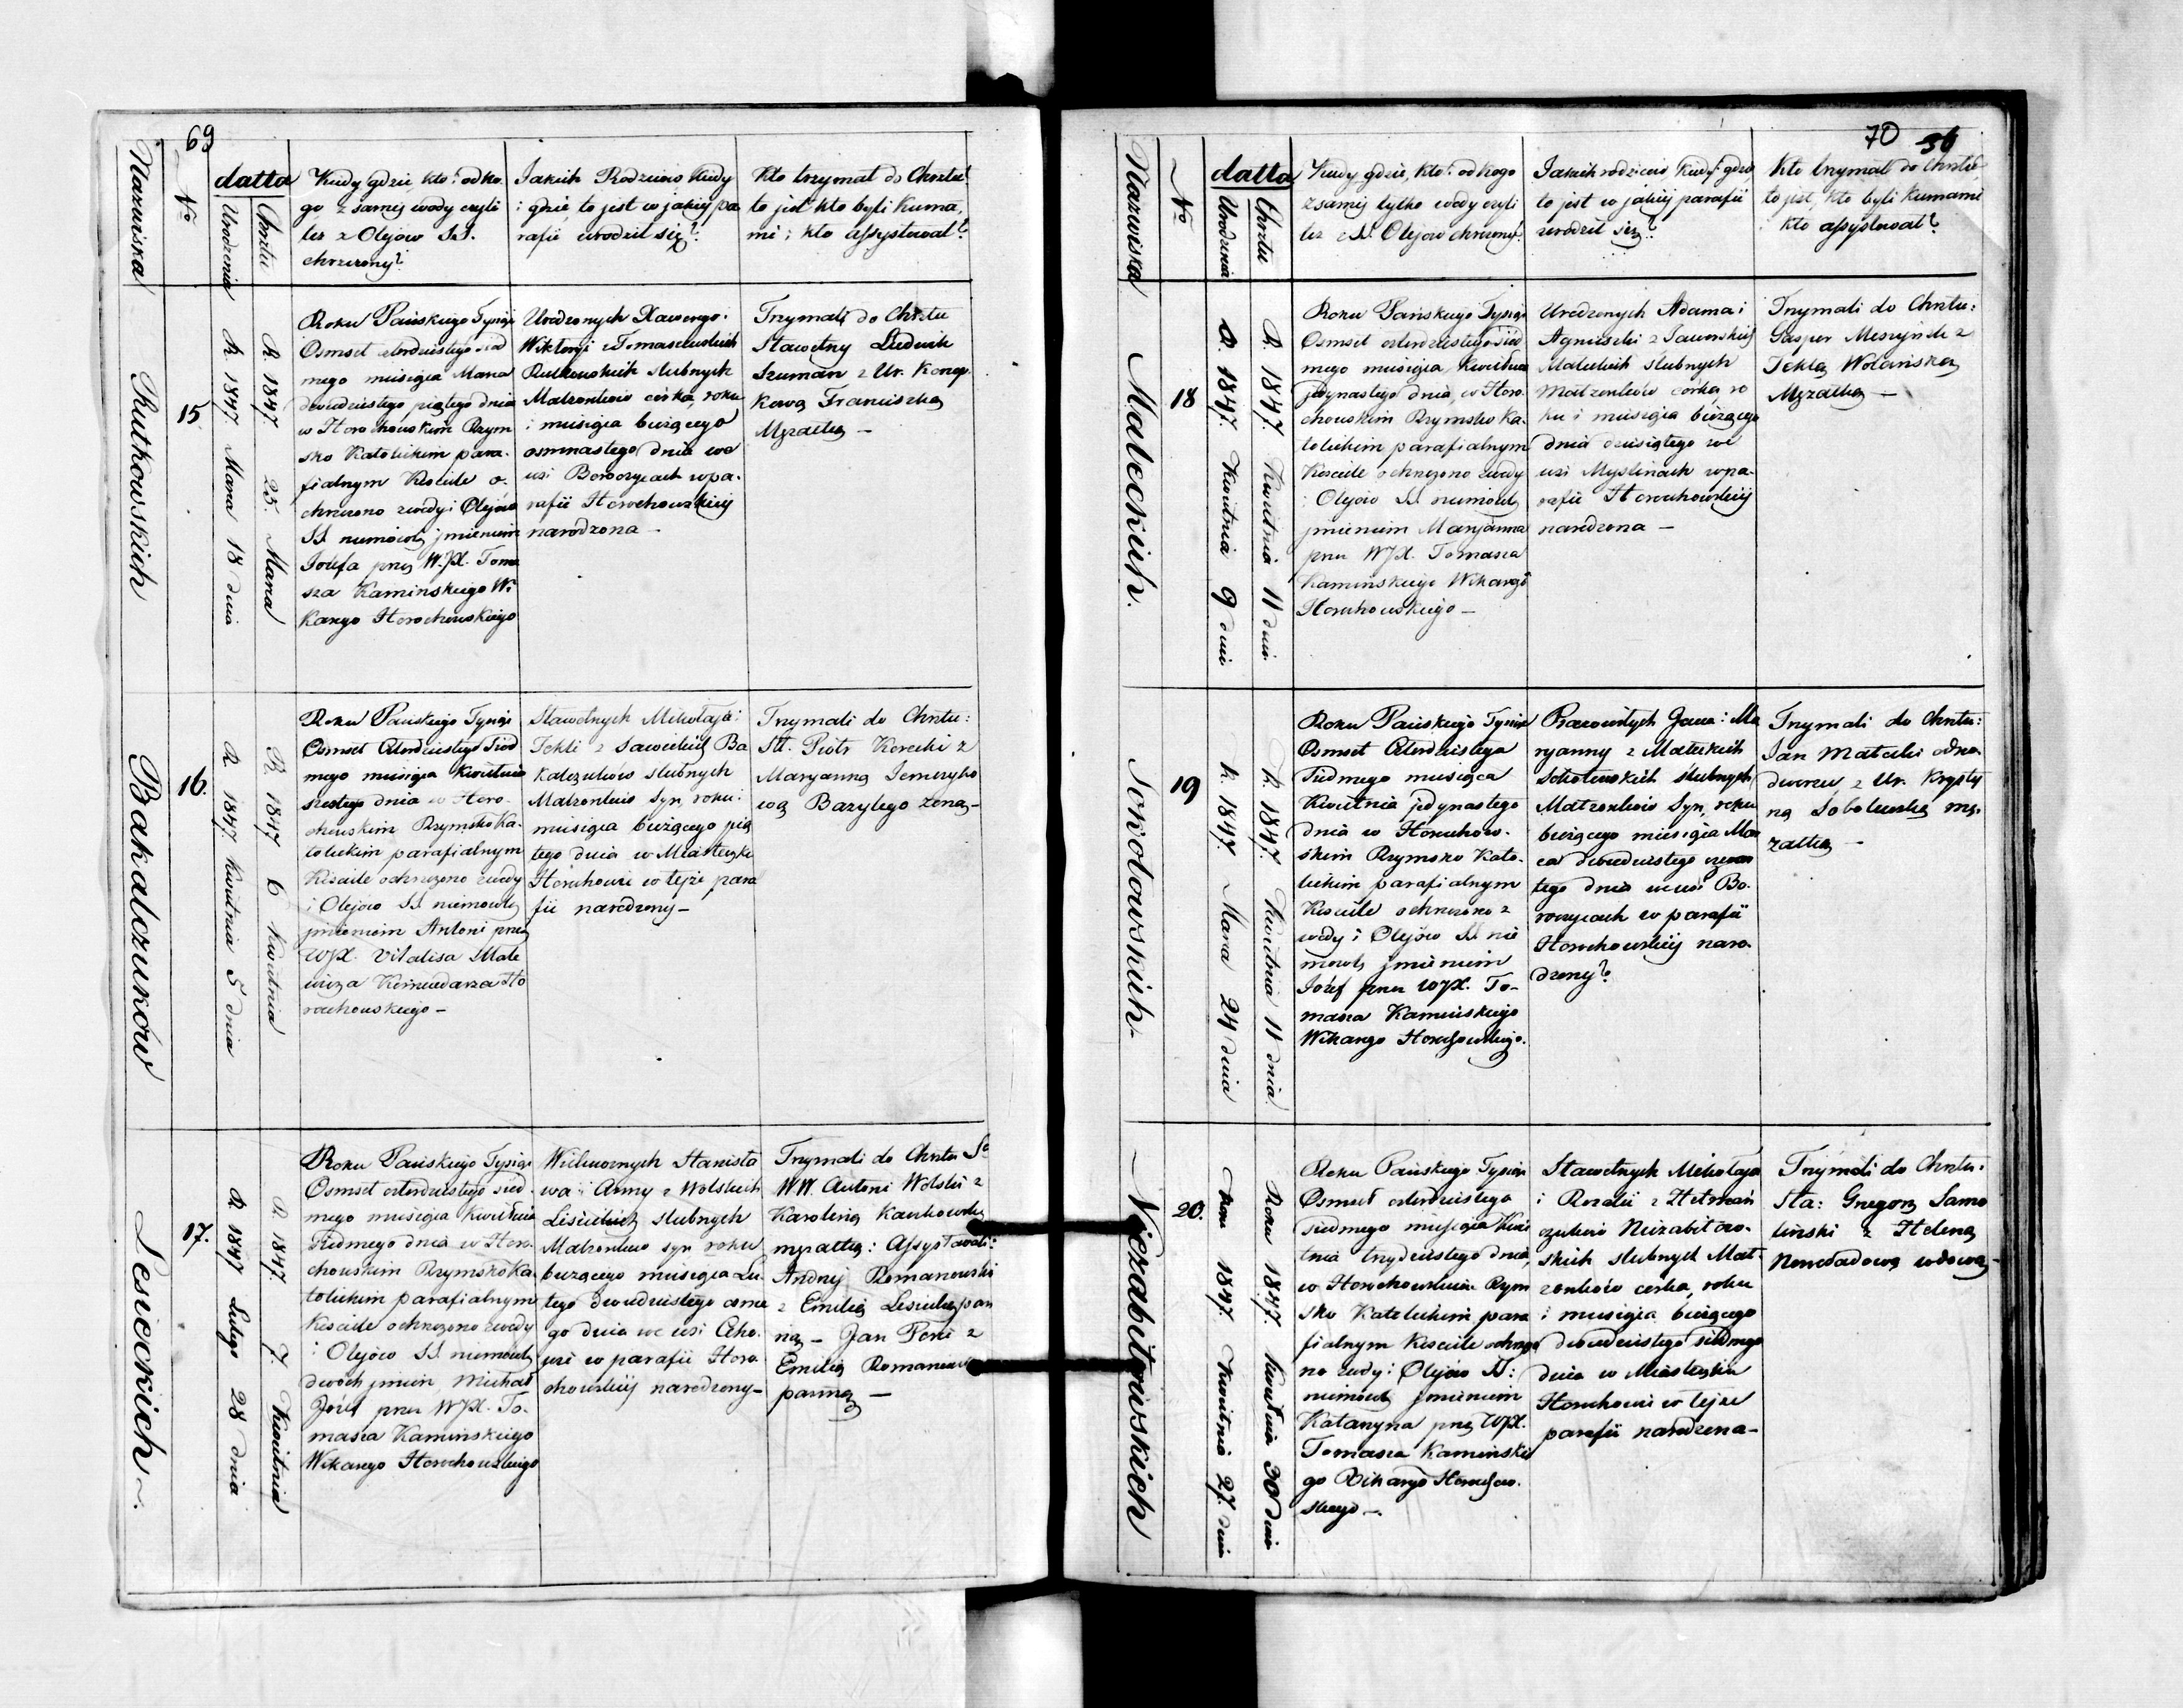 69
Nazwiska
No
datta
Urodzenia
Chrztu
Kiedy, gdzie, kto? od ko
go z samej wody czyli
też z Olejów S.S.
chrzczony?
Jakich Rodziców kiedy
i gdzie, to jest w jakiej pa
rafii urodził się?
Kto trzymał do Chrztu?
to jest kto byli Kuma,
mi; kto assystował?
Rutkowskich
15
R. 1847 Marca 18 dnia
R. 1847. 25. Marca
Roku Pańskiego Tysiąc
Osmset czterdziestego siód
mego miesiąca Marca
dwudziestego piątego dnia
w Horochowskim Rzym
sko Katolickim para.
fialnym Kościele o.
chrzczono z wody i Olejów
SS. niemowlę jmieniem
Józefa przez W.JX. Toma
sza Kaminskiego Wi
karego Horochowskiego
Urodzonych Xawerego i
Wiktorji z Tomaszewskich
Rutkowskich slubnych
Małzonków córka, roku
i miesiąca bieżącego
osmnastego dnia we
wsi Boroczycach w pa.
rafii Horochowskiej
narodzona —
Trzymali do Chrztu
Sławetny Ludwik
Szuman z Ur.
kową Franciszką
Mężatką —
Bakalczuków
16.
R. 1847. Kwietnia 5 dnia
R. 1847 6 Kwietnia
Roku Pańskiego Tysiąc
Osmset Czterdziestego Siód
mego miesiąca Kwietnia
szostego dnia w Horo.
chowskim Rzymsko Ka.
tolickim parafialnym
Kościele ochrzczono z wody
i Olejow SS. niemowlę
jmieniem Antoni przez
WJX. Vitalisa Male
wicza Komendarza Ho
rochowskiego —
Sławetnych Mikołaja i
Tekli z Sawickich Ba
kalczuków slubnych
Małzonków Syn, roku i
miesiąca bieżącego pią
tego dnia w Miasteczku
Horochowie w tejże para
fii narodzony —
Trzymali do Chrztu:
Sł. Piotr Korecki z
Maryanną
wą Bazylego żoną —
Lesieckich
17.
R. 1847 Lutego 28 dnia
R. 1847. 7. Kwietnia
Roku Pańskiego Tysiąc
Osmset czterdziestego siód.
mego miesiąca Kwietnia
Siódmego dnia w Horo.
chowskim Rzymsko Ka.
tolickim parafialnym
Kościele ochrzczono z wody
i Olejów SS. niemowlę
dwoch jmion, Michał
Józef przez WJX. To.
masza Kaminskiego
Wikarego Horochowskiego
Wielmożnych Stanisła
wa i Anny z Wolskich
Lesieckich slubnych
Małzonków syn roku
bieżącego miesiąca Lu
tego dwudziestego osme
go dnia we wsi
w parafii Horo.
chowskiej narodzony —
Trzymali do Chrztu
WW. Antoni Wolski z
Karoliną
mężatką: Assystowali:
Andrzej Romanowski
z Emilią Lesiecką pan
ną — Jan z
Emilią
panną —
70 36
Nazwiska
No
datta
Urodzenia
Chrztu
Kiedy, gdzie, kto? od kogo
z samej tylko wody czyli
też z SS. Olejow chrzczony?
Jakich rodziców kiedy i gdzie
to jest w jakiej parafii
urodził się?
Kto trzymał do Chrztu,
to jest, kto byli Kumami
kto assystował?
Maleckich.
18
R. 1847. Kwietnia 9 dnia
R. 1847. Kwietnia 11 dnia
Roku Pańskiego Tysiąc
Osmset czterdziestego Siód
mego miesiąca Kwietnia
jedynastego dnia, w Horo.
chowskim Rzymsko Ka.
tolickim parafialnym
Kościele ochrzczono z wody
i Olejow SS. niemowlę
jmieniem Maryanna
przez WJX. Tomasza
Kaminskiego Wikarego
Horochowskiego —
Urodzonych Adama i
Agnieszki z
Maleckich slubnych
Małzonków córka, ro
ku i miesiąca bieżącego
dnia dziewiątego we
wsi Myslinach w pa.
rafii Horochowskiej
narodzona —
Trzymali do Chrztu:
Gasper z
Teklą Wolańską
Mężatką —
Sokołowskich
19
R. 1847. Marca 24 dnia
R. 1847. Kwietnia 11 dnia
Roku Pańskiego Tysiąc
Osmset Czterdziestego
Siódmego miesiąca
Kwietnia jedynastego
dnia w Horochow.
skim Rzymsko Kato.
lickim parafialnym
Kościele ochrzczono z
wody i Olejów SS. nie
mowlę jmieniem
Józef przez WJX. To-
masza Kaminskiego
Wikarego Horochowskiego.
Pracowitych Jana i Ma
ryanny z Małeckich
Sokołowskich slubnych
Małzonków Syn, roku
bieżącego miesiąca Mar
ca dwudziestego czwar
tego dnia we wsi Bo.
roczycach w parafii
Horochowskiej naro.
dzony.
Trzymali do Chrztu:
Jan Małecki odno.
dworzec z Ur. Krysty
ną Sobolewską mę.
żatką —
Niezabitowskich
20.
Roku 1847. Kwietnia 27. dnia
Roku 1847. Kwietnia 30 dnia
Roku Pańskiego Tysiąc
Osmset czterdziestego
Siódmego miesiąca Kwie
tnia trzydziestego dnia,
w Horochowskim Rzym
sko Katolickim para
fialnym Kościele ochrzczo
no z wody i Olejów SS:
niemowlę jmieniem
Katarzyna przez WJX.
Tomasza Kaminskie
go Wikarego Horochow.
skiego —.
Sławetnych Mikołaja
i Rozalii z Hetmań
czuków Niezabitow-
skich slubnych Mał-
zonków córka, roku
i miesiąca bieżącego
dwudziestego siódmego
dnia w Miasteczku
Horochowie w tejże
parafii narodzona —
Trzymali do Chrztu:
Sła: Gregorz Samo
liński z Heleną
wdową —